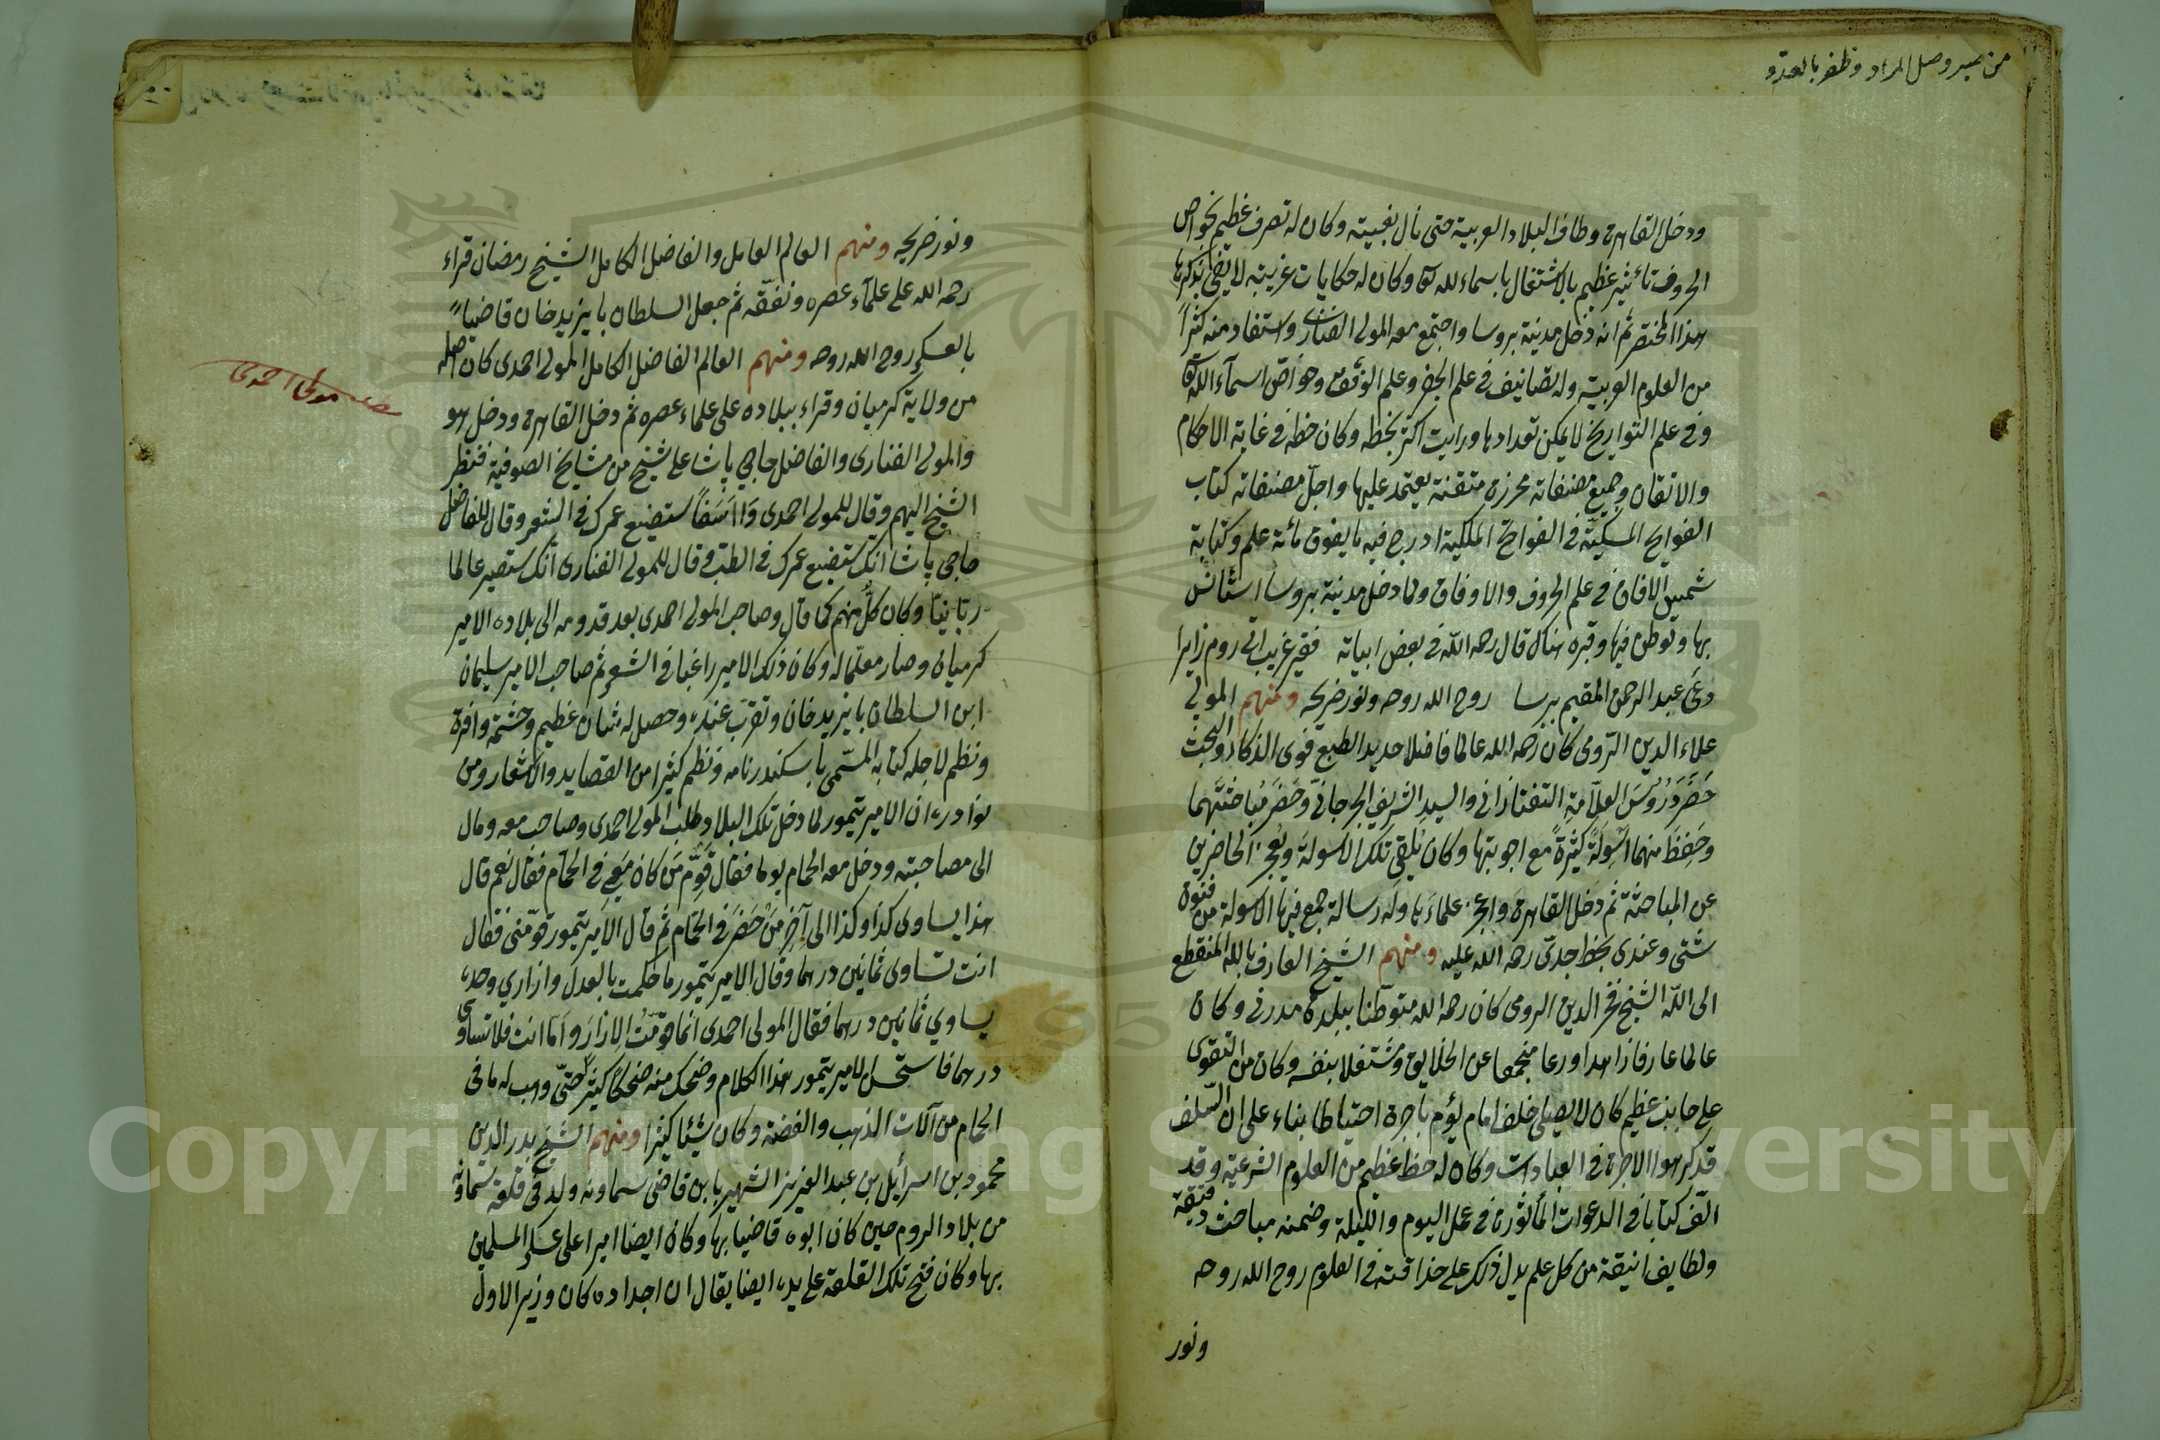 من صبر وصل المراد وظفر بالعدو
ودخل القاهرة وطاف البلاد العربية حتى نال بغيته وكان له تصرف عظيم بخواص
الحروف تأثير عظيم بالاشتغال باسماء لله تعا وكان له حكايات غريبة لا يفي بذكرها
هذا المختصر ثم انه دخل مدينة بروسا واجتمع معه المولى الفنارى واستفاد منه كثيرا
من العلوم الغريبة وله تصانيف في علم الجفر وعلم الوفق وخواص اسماء الله تعا
وفي علم التواريخ لا يمكن تعدادها ورايت اكثر بخطه وكان خطه في غاية الاحكام
والاتقان وجميع مصنفاته محررة متقنة يعتمد عليها واجل مصنفاته كتاب
الفوايح المسكية في الفواتح المكية ادرج فيه ما يفوق مائة علم وكتابة
شمس الافاق في علم الحروف والاوفاق ولما دخل مدينة بروسا استأنس
بها وتوطن فيها وقبره هناك قال رحمه الله في بعض ابياته فقير غريب اتى روم زايرا
دعى عبد الرحمن المقيم ببرسا روح الله روحه ونور ضريحه ومنهم المولى
علاء الدين الرومى كان رحمه الله عالما فاضلا حديد الطبع قوى الذكاء والبحث
حضر دروس العلامة التفتازانى والسيد الشريف الجرجانى وحضر مباحثتهما
وحفظ منهما اسولة كثيرة مع اجوبتها وكان يلقى تلك الاسولة ويعجز الحاضرين
عن المباحثة ثم دخل القاهرة واعجز علماءها وله رسالة جمع فيها الاسولة من فنون
شتى وعندى بخط جدى رحمه الله عليه ومنهم الشيخ العارف بالله المنقطع
الى الله الشيخ فخر الدين الرومى كان رحمه الله متوطنا ببلدة مدرنى وكان
عالما عارفا زاهدا ورعا منجمعا عن الخلايق ومشتغلا بنفسه وكان من التقوى
على جانب عظيم كان لا يصلى خلف امام يؤم باجرة احتياطا بناء على ان السلف
قد كرهوا الاجرة في العبادات وكان له حظ عظيم من العلوم الشرعية وقد
الف كتابا في الدعوات المأثورة في عمل اليوم والليلة وضمنه مباحث دقيقة
ولطايف انيقة من كل علم يدل ذلك على حذاقته في العلوم روح الله روحه
ونور
ونور ضريحه ومنهم العالم العامل والفاضل الكامل الشيخ رمضان قراء
رحمه الله على علماء عصره وتفقه ثم جعل السلطان بايزيد خان قاضيا
بالعسكر روح الله روحه ومنهم العالم الفاضل الكامل المولى احمدى كان اصله
مولى احمدى
من ولاية كرميان وقراء ببلاده على علماء عصره ثم دخل القاهرة ودخل هو
والمولى الفنارى والفاضل حاجى پاشا على شيخ من مشايخ الصوفية فنظر
الشيخ اليهم وقال للمولى احمدى وا اسفا ستضيع عمرك في الشعر وقال للفاضل
حاجى پاشا انك ستضيع عمرك في الطب وقال للمولى الفنارى انك ستصير عالما
ربانيا وكان كل منهم كما قال وصاحب المولى احمدى بعد قدومه الى بلاده الامير
كرميان وصار معلما له وكان ذلك الامير راغبا في الشعر ثم صاحب الامير سليمان
ابن السلطان بايزيد خان وتقرب عنده وحصل له شان عظيم وحشمة وافرة
ونظم لاجله كتابه المسمى باسكندرنامه ونظم كثيرا من القصايد والاشعار ومن
نوادره ان الامير تيمور لما دخل تلك البلاد وطلب المولى احمدى وصاحب معه ومال
الى مصاحبته ودخل معه الحمام يوما فقال قوم من كان معي في الحمام فقال نعم قال
هذا يساوى كذا وكذا الى آخر من حضر في الحمام ثم قال الامير تيمور قومنى فقال
انت تساوى ثمانين درهما وقال الامير تيمور ما حكمت بالعدل وازاري وحده
يساوي ثمانين درهما فقال المولى احمدى انما قومت الازار واما انت فلا تساوى
درهما فاستحسن الامير تيمور هذا الكلام وضحك منه ضحكا كثيرا حتى وهب له ما فى
الحمام من آلات الذهب والفضة وكان شيئا كثيرا ومنهم الشيخ بدر الدين
محمود بن اسرائيل بن عبد العزيز الشهير بابن قاضى سماونه ولد في قلعة سماونه
من بلاد الروم حين كان ابوه قاضيا بها وكان ايضا اميرا على عسكر المسلمين
بها وكان فتح تلك القلعة على يده ايضا يقال ان اجداده كان وزير الاول
Copyright © King Saud University